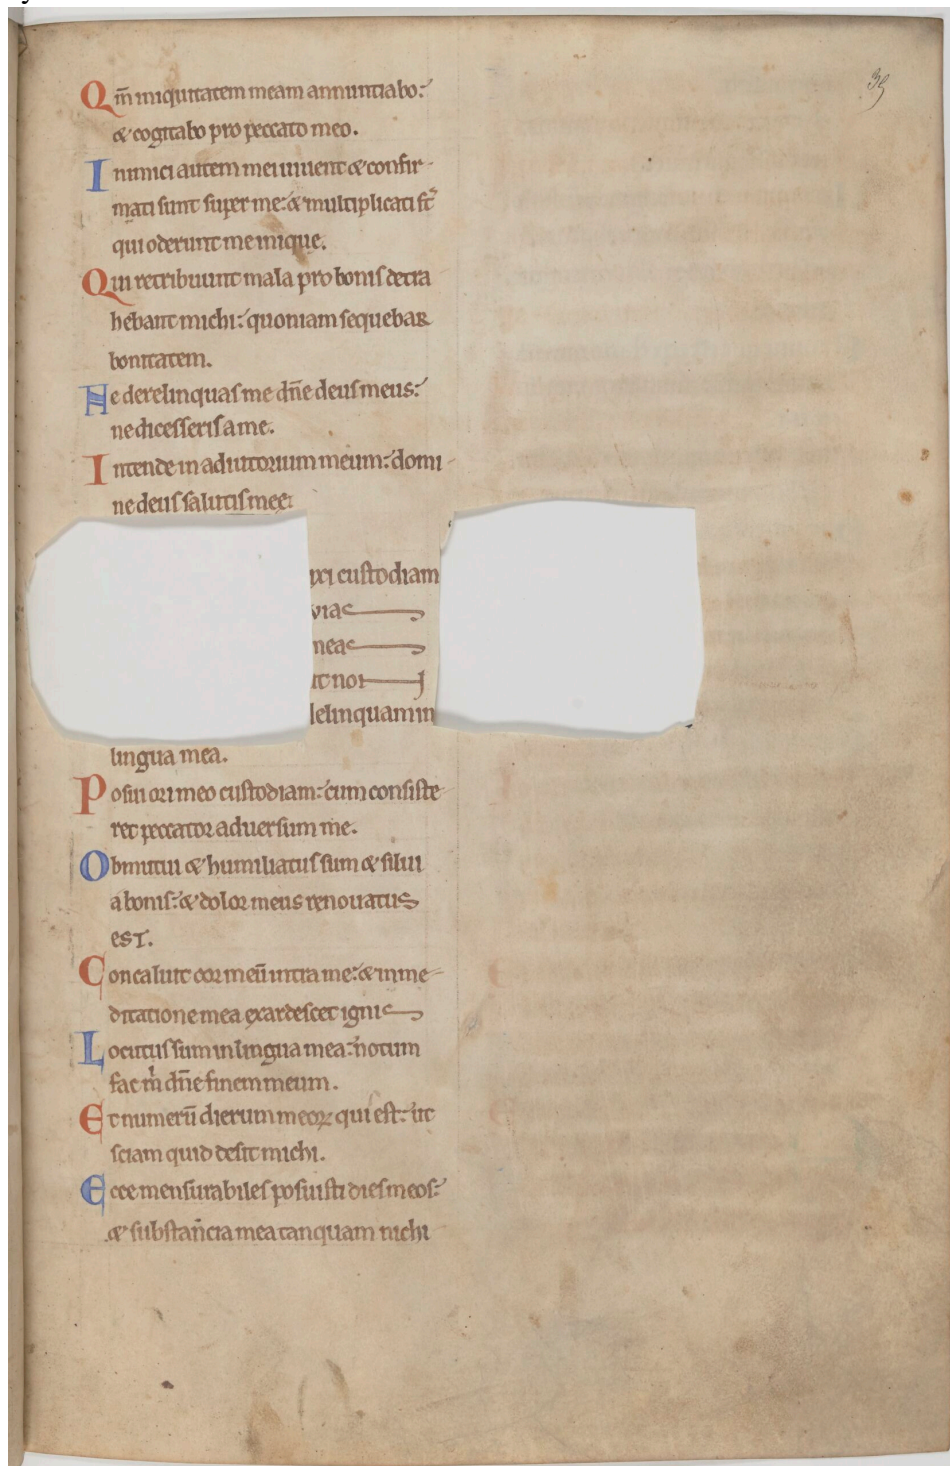 39
Qm̄ iniquitatem meam annuntiabo:
& cogitabo pro peccato meo.
Inimici autem mei uiuent & confir-
mati sunt super me: & multiplicati st̄
qui oderunt me inique.
Qui retribuunt mala pro bonis detra
hebant michi: quoniam sequebar
bonitatem.
Ne derelinquas me dn̄e deus meus:
ne dicesseris a me.
Intende in adiutorium meum: domi-
ne deus salutis mee.
ixi custodiam
vias
meas
ut non
delinquam in
lingua mea.
Posui ori meo custodiam: cum consiste-
ret peccator adversum me.
Obmutui & humiliatus sum & silui
a bonis: & dolor meus renouatus
est.
Concaluit cor meū intra me: & in me-
ditatione mea exardescet ignis
Locutus sum in lingua mea: notum
fac m̄ dn̄e finem meum.
Et numerū dierum meoꝝ qui est: ut
sciam quid desit michi.
Ecce mensurabiles posuisti dies meos:
& substan̄cia mea tanquam nichi